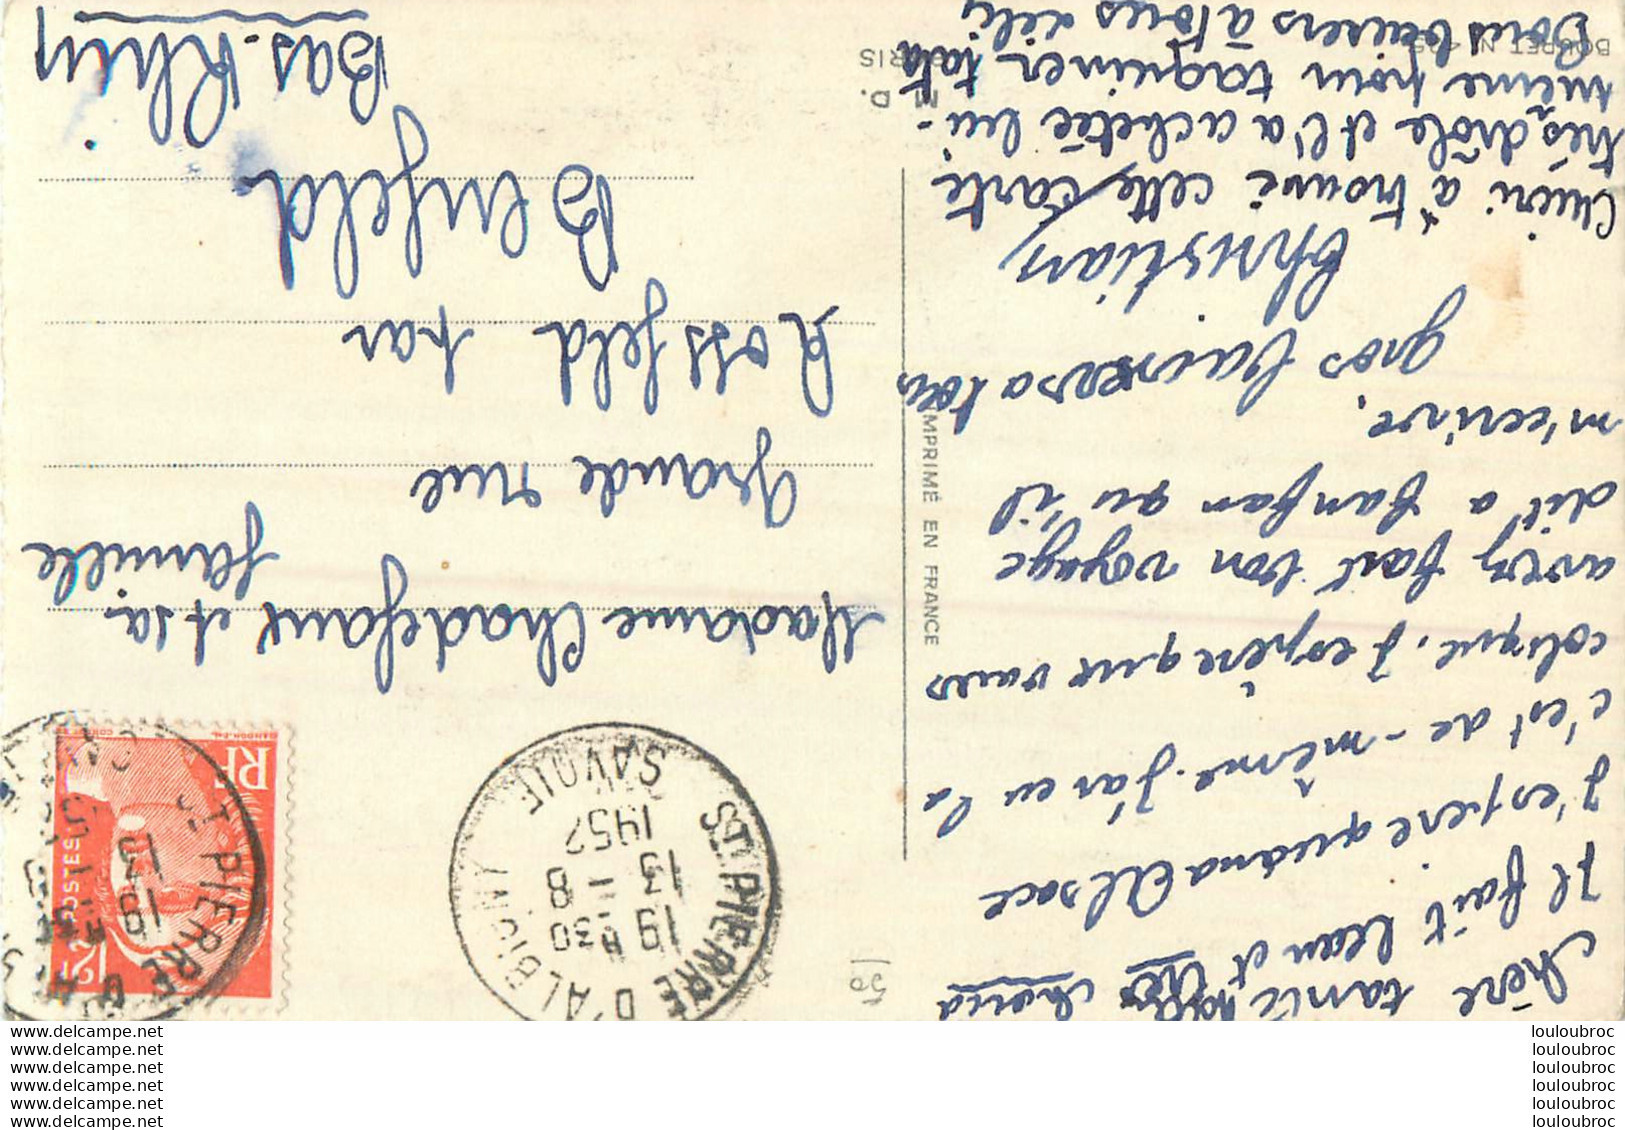 Chère tante
Il fait beau et très chaud
J'espère quand Alsace
c'est de-même. J'ai eu la
colique. J'espère que vous
avez fait bon voyage
dit a fanfan qu'il
m'ecrive.
gros baisers a tous
Christian
à trouvé cette carte
très drôle et l'a achetée lui-
même pour taquiner tata
Bons baisers à tous
IMPRIMÉ EN FRANCE
M. D.
PARIS
50
Madame Chadefaux et sa
famille
Grande rue
Rossfeld par
Benfeld
Bas-Rhin
ST PIERRE D'ALBIGNY
19 H30
13 - 8
1952
SAVOIE
RF
POSTES
12F
ST PIERRE D'AL
19 H30
13
www.delcampe.net
www.delcampe.net
www.delcampe.net
www.delcampe.net
www.delcampe.net
www.delcampe.net
louloubroc
louloubroc
louloubroc
louloubroc
louloubroc
louloubroc